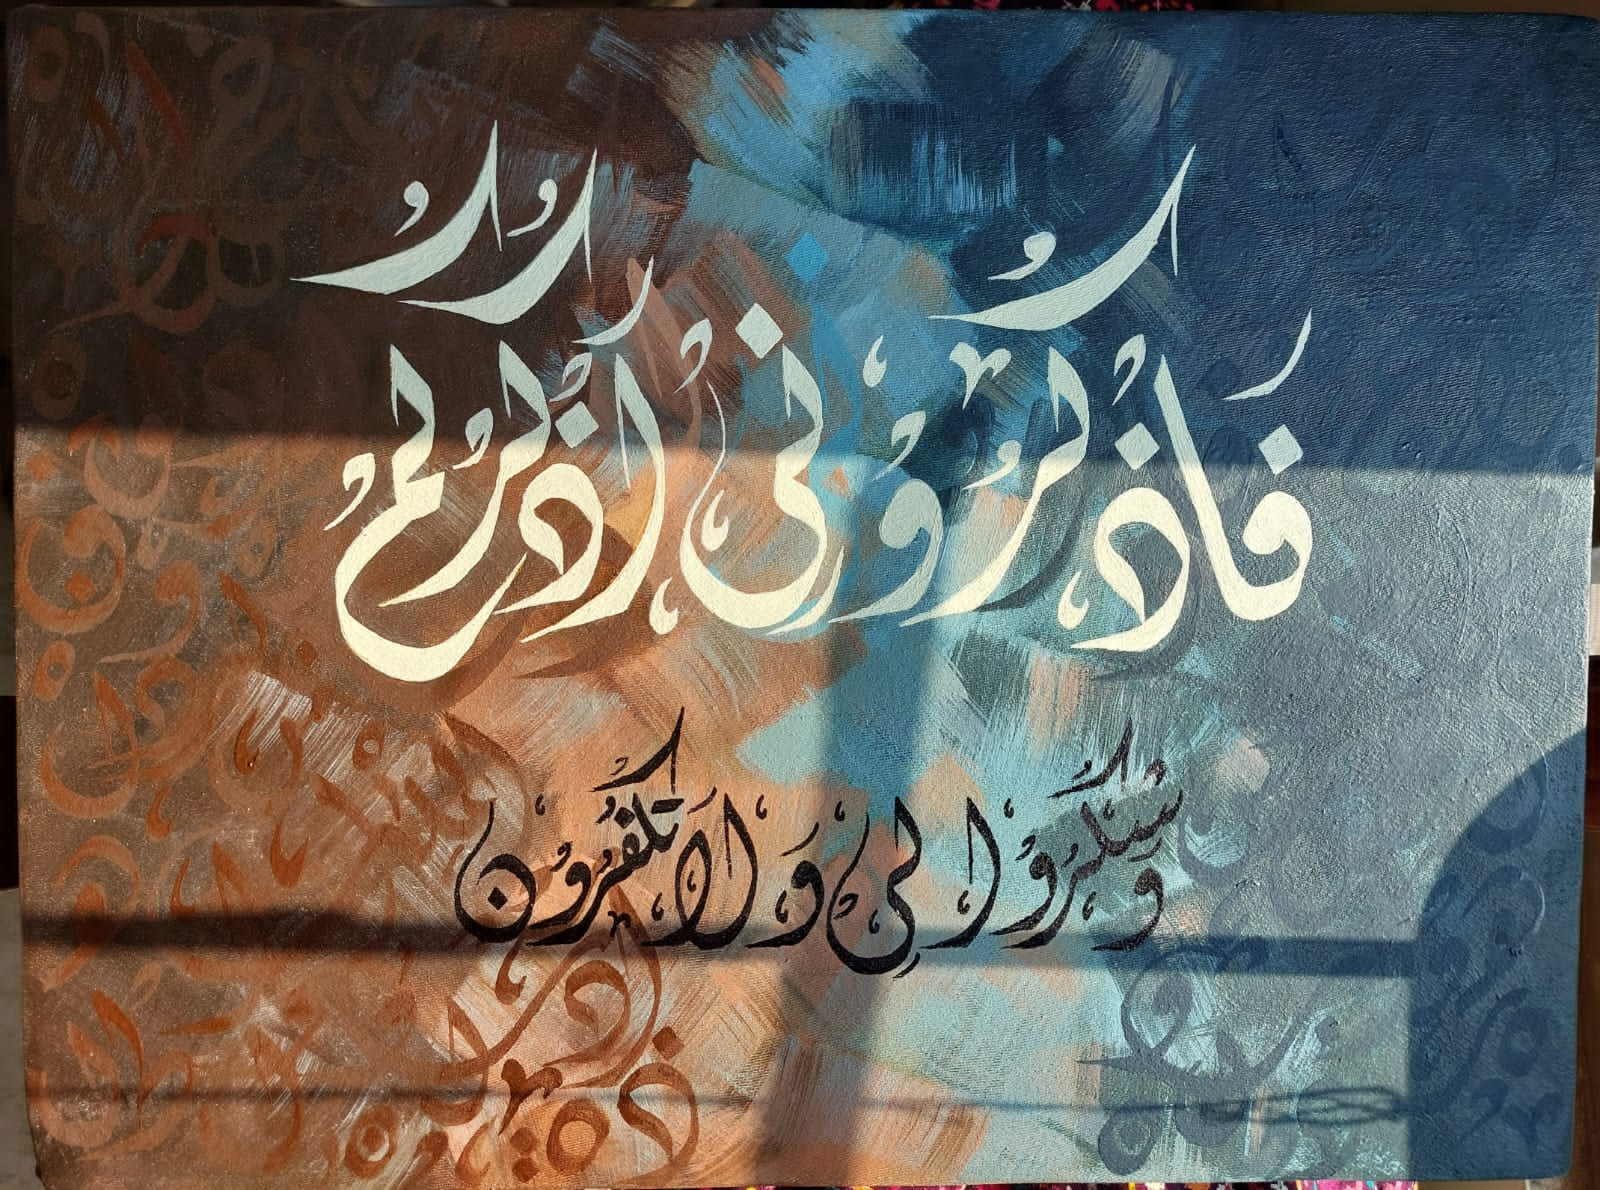 فَاذْكُرُونِي اذْكُرْكُمْ
وَشْكُرُوا لِي وَلَا تَكْفُرُونِ